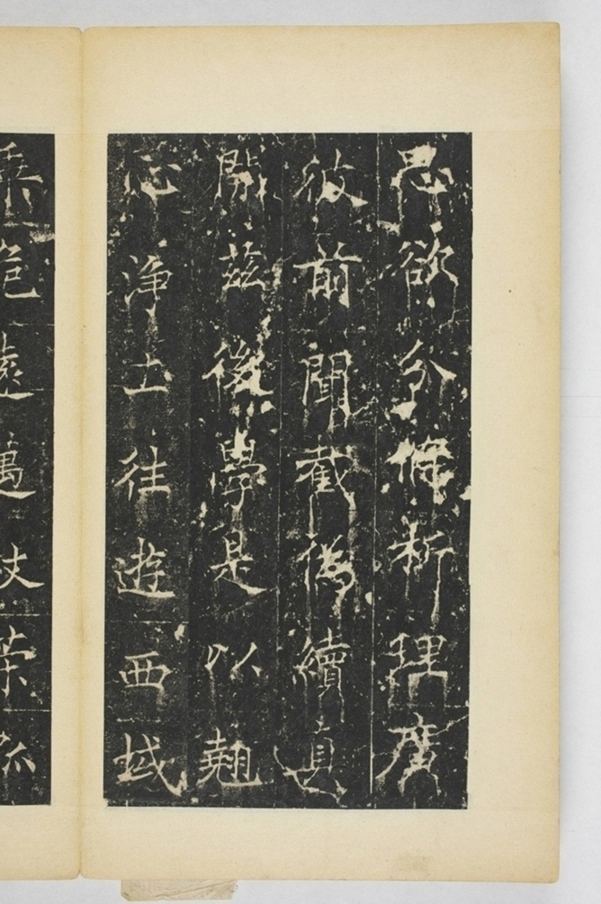 思欲分條析理廣
彼前聞截偽續真
開茲後學是以翹
心淨土往遊西域
乘危遠邁杖策孤